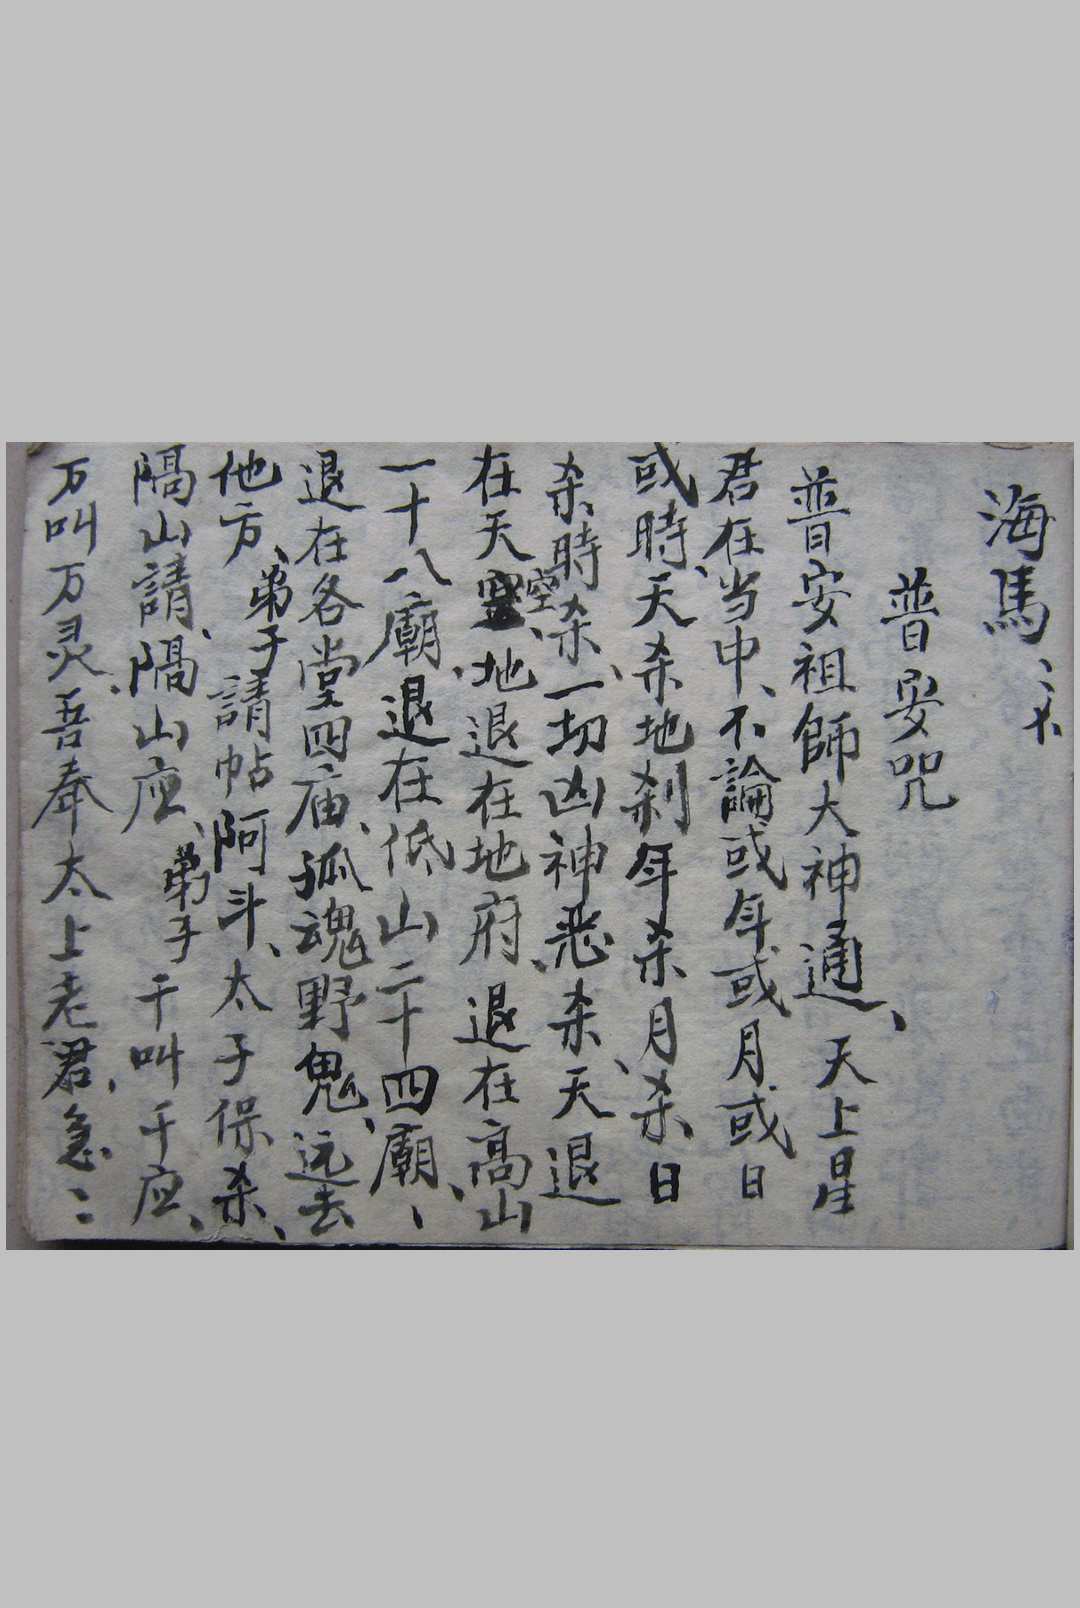 海馬
普安咒
普安祖師大神通、天上星
君在当中、不論或年或月或日
或時、天杀地刹年杀月杀日
杀時杀、一切凶神恶杀、天退
在天空、地退在地府退在高山
一十八廟、退在低山二十四廟、
退在各堂四庙、孤魂野鬼、远去
他方、弟子請帖阿斗、太子保杀、
隔山請、隔山应、弟子千叫千应、
万叫万灵、吾奉太上老君、急〻